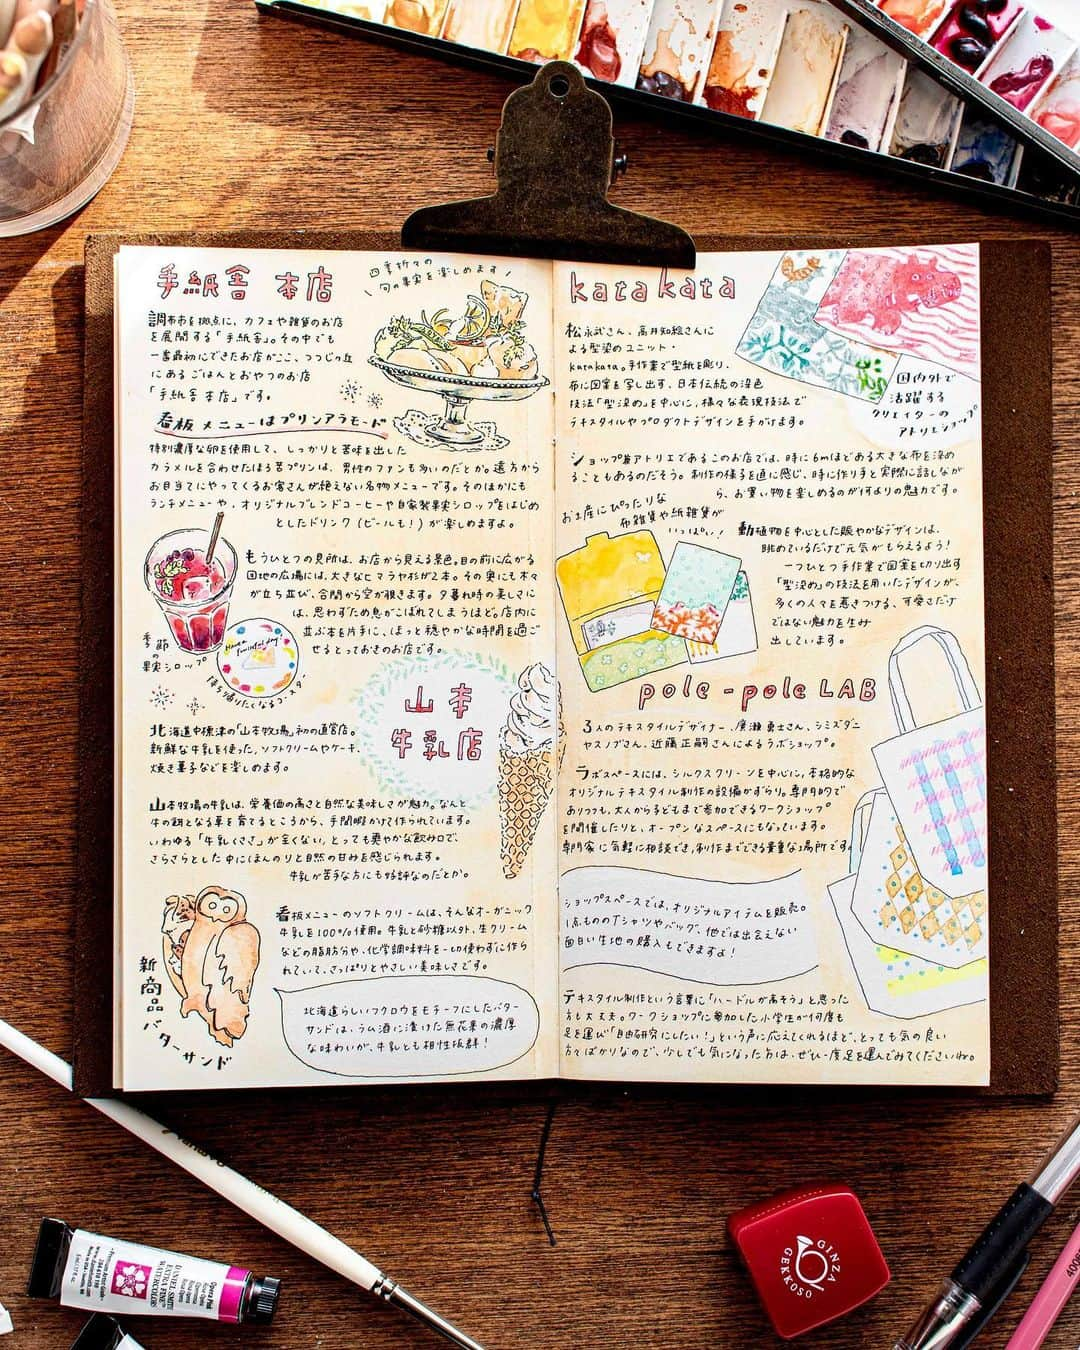 手紙舎 本店
四季折々の
旬の果実を楽しめます
調布市を拠点に、カフェや雑貨のお店
を展開する「手紙舎」。その中でも
一番最初にできたお店がここ、つつじヶ丘
にあるごはんとおやつのお店
「手紙舎 本店」です。
看板メニューはプリンアラモード
特別濃厚な卵を使用して、しっかりと苦味を出した
カラメルを合わせたほろ苦プリンは、男性のファンも多いのだとか。遠方から
お目当てにやってくるお客さんが絶えない名物メニューです。そのほかにも
ランチメニューや、オリジナルブレンドコーヒーや自家製果実シロップをはじめ
としたドリンク（ビールも！）が楽しめますよ。
もうひとつの見所は、お店から見える景色。目の前に広がる
団地の広場には、大きなヒマラヤ杉が2本。その奥にも木々
が立ち並び、合間から空が覗きます。夕暮れ時の美しさに
は、思わずため息がこぼれてしまうほど。店内に
並ぶ本を片手に、ほっと穏やかな時間を過ご
せるとっておきのお店です。
季節
の
果実シロップ
Have a
Twilightful day!
持ち帰りたくなるコースター
山本
牛乳店
北海道中標津の「山本牧場」初の直営店。
新鮮な牛乳を使った、ソフトクリームやケーキ、
焼き菓子などを楽しめます。
山本牧場の牛乳は、栄養価の高さと自然な美味しさが魅力。なんと
牛の餌となる草を育てるところから、手間暇かけて作られています。
いわゆる「牛乳くささ」が全くない、とっても爽やかな飲み口で、
さらさらとした中にほんのりと自然の甘みを感じられます。
牛乳が苦手な方にも好評なのだとか。
看板メニューのソフトクリームは、そんなオーガニック
牛乳を100%使用。牛乳と砂糖以外、生クリーム
などの脂肪分や、化学調味料を一切使わずに作ら
れていて、さっぱりとやさしい美味しさです。
新商品
バターサンド
北海道らしいフクロウをモチーフにしたバター
サンドは、ラム酒に漬けた無花果の濃厚
な味わいが、牛乳とも相性抜群！
katakata
松永武さん、高井知絵さんに
よる型染のユニット・
katakata。手作業で型紙を彫り、
布に図案を写し出す、日本伝統の染色
技法「型染め」を中心に、様々な表現技法で
テキスタイルやプロダクトデザインを手がけます。
国内外で
活躍する
クリエイターの
アトリエショップ
ショップ兼アトリエであるこのお店では、時に6mほどある大きな布を染め
ることもあるのだそう。制作の様子を直に感じ、時に作り手と実際に話しなが
ら、お買い物を楽しめるのが何よりの魅力です。
お土産にぴったりな
布雑貨や紙雑貨が
いっぱい！
動植物を中心とした賑やかなデザインは、
眺めているだけで元気がもらえるよう！
一つひとつ手作業で図案を切り出す
「型染め」の技法を用いたデザインが、
多くの人々を惹きつける、可愛さだけ
ではない魅力を生み
出しています。
pole-pole LAB
3人のテキスタイルデザイナー、廣瀬勇士さん、シミズダニ
ヤスノブさん、近藤正嗣さんによるラボショップ。
ラボスペースには、シルクスクリーンを中心に、本格的な
オリジナルテキスタイル制作の設備がずらり。専門的で
ありつつも、大人から子どもまで参加できるワークショップ
を開催したりと、オープンなスペースにもなっています。
専門家に気軽に相談でき、制作までできる貴重な場所です。
ショップスペースでは、オリジナルアイテムを販売。
1点もののTシャツやバッグ、他では出会えない
面白い生地の購入もできますよ！
テキスタイル制作という言葉に「ハードルが高そう」と思った
方も大丈夫。ワークショップに参加した小学生が何度も
足を運び「自由研究にしたい！」という声に応えてくれるほど、とっても気の良い
方々ばかりなので、少しでも気になった方は、ぜひ一度足を運んでみてくださいね。
Opera Pink
DANIEL SMITH
EXTRA FINE
WATERCOLORS
GINZA
GEKKOSO